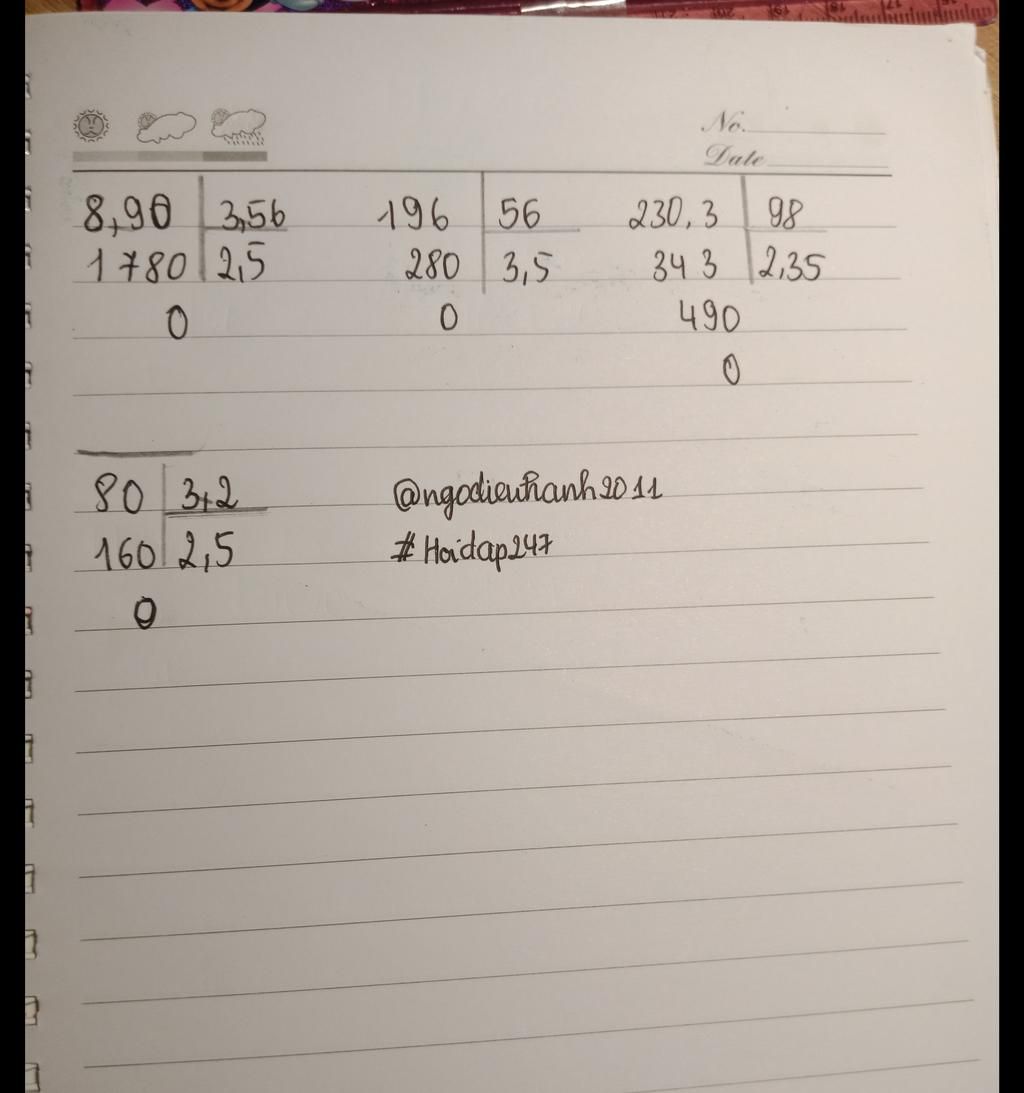 No.
Date
8,90 3,56 196 56 230,3 98
1780 2,5 280 3,5 343 2,35
0 0 490
0
80 3,2 @ngodieuhanh2011
160 2,5 #Hoidap247
0